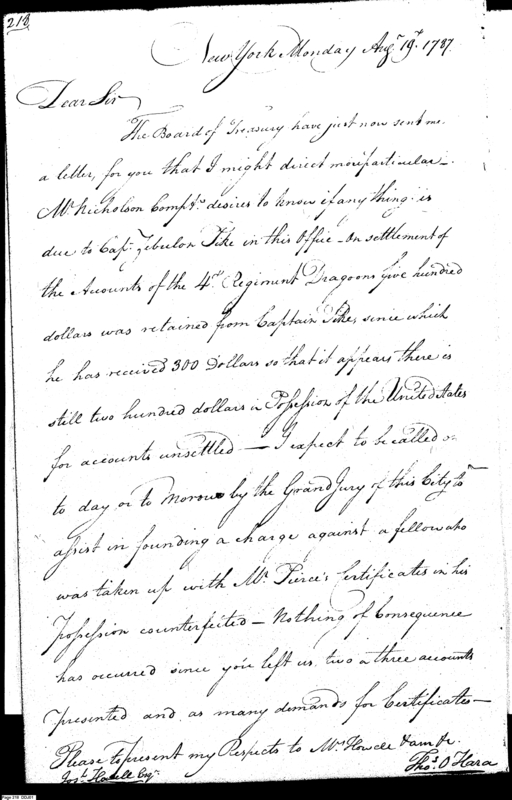 218
New York Monday Augt 19th 1787.
Dear Sir
The Board of Treasury have just now sent me
a letter, for you that I might direct more particular -
Mr Nicholson Comptr desires to know if any thing is
due to Capt Zebulon Pike in this Office - On settlement of
the Accounts of the 4th Regiment Dragoons five hundred
dollars was retained from Captain Pike, since which
he has received 300 Dollars so that it appears there is
still two hundred dollars in Possession of the United States
for accounts unsettled — I expect to be called on
to day or to Morow by the Grand Jury of this City to
assist in founding a charge against a fellow who
was taken up with Mr Pierce's Certificates in his
Possession counterfeited — Nothing of Consequence
has occurred since you left us, two a three accounts
presented and as many demands for Certificates —
Please to present my Respects to Mr Howell & am &c.
Thos O Hara
Josh Howell Esqr
Page 218 DDJ01